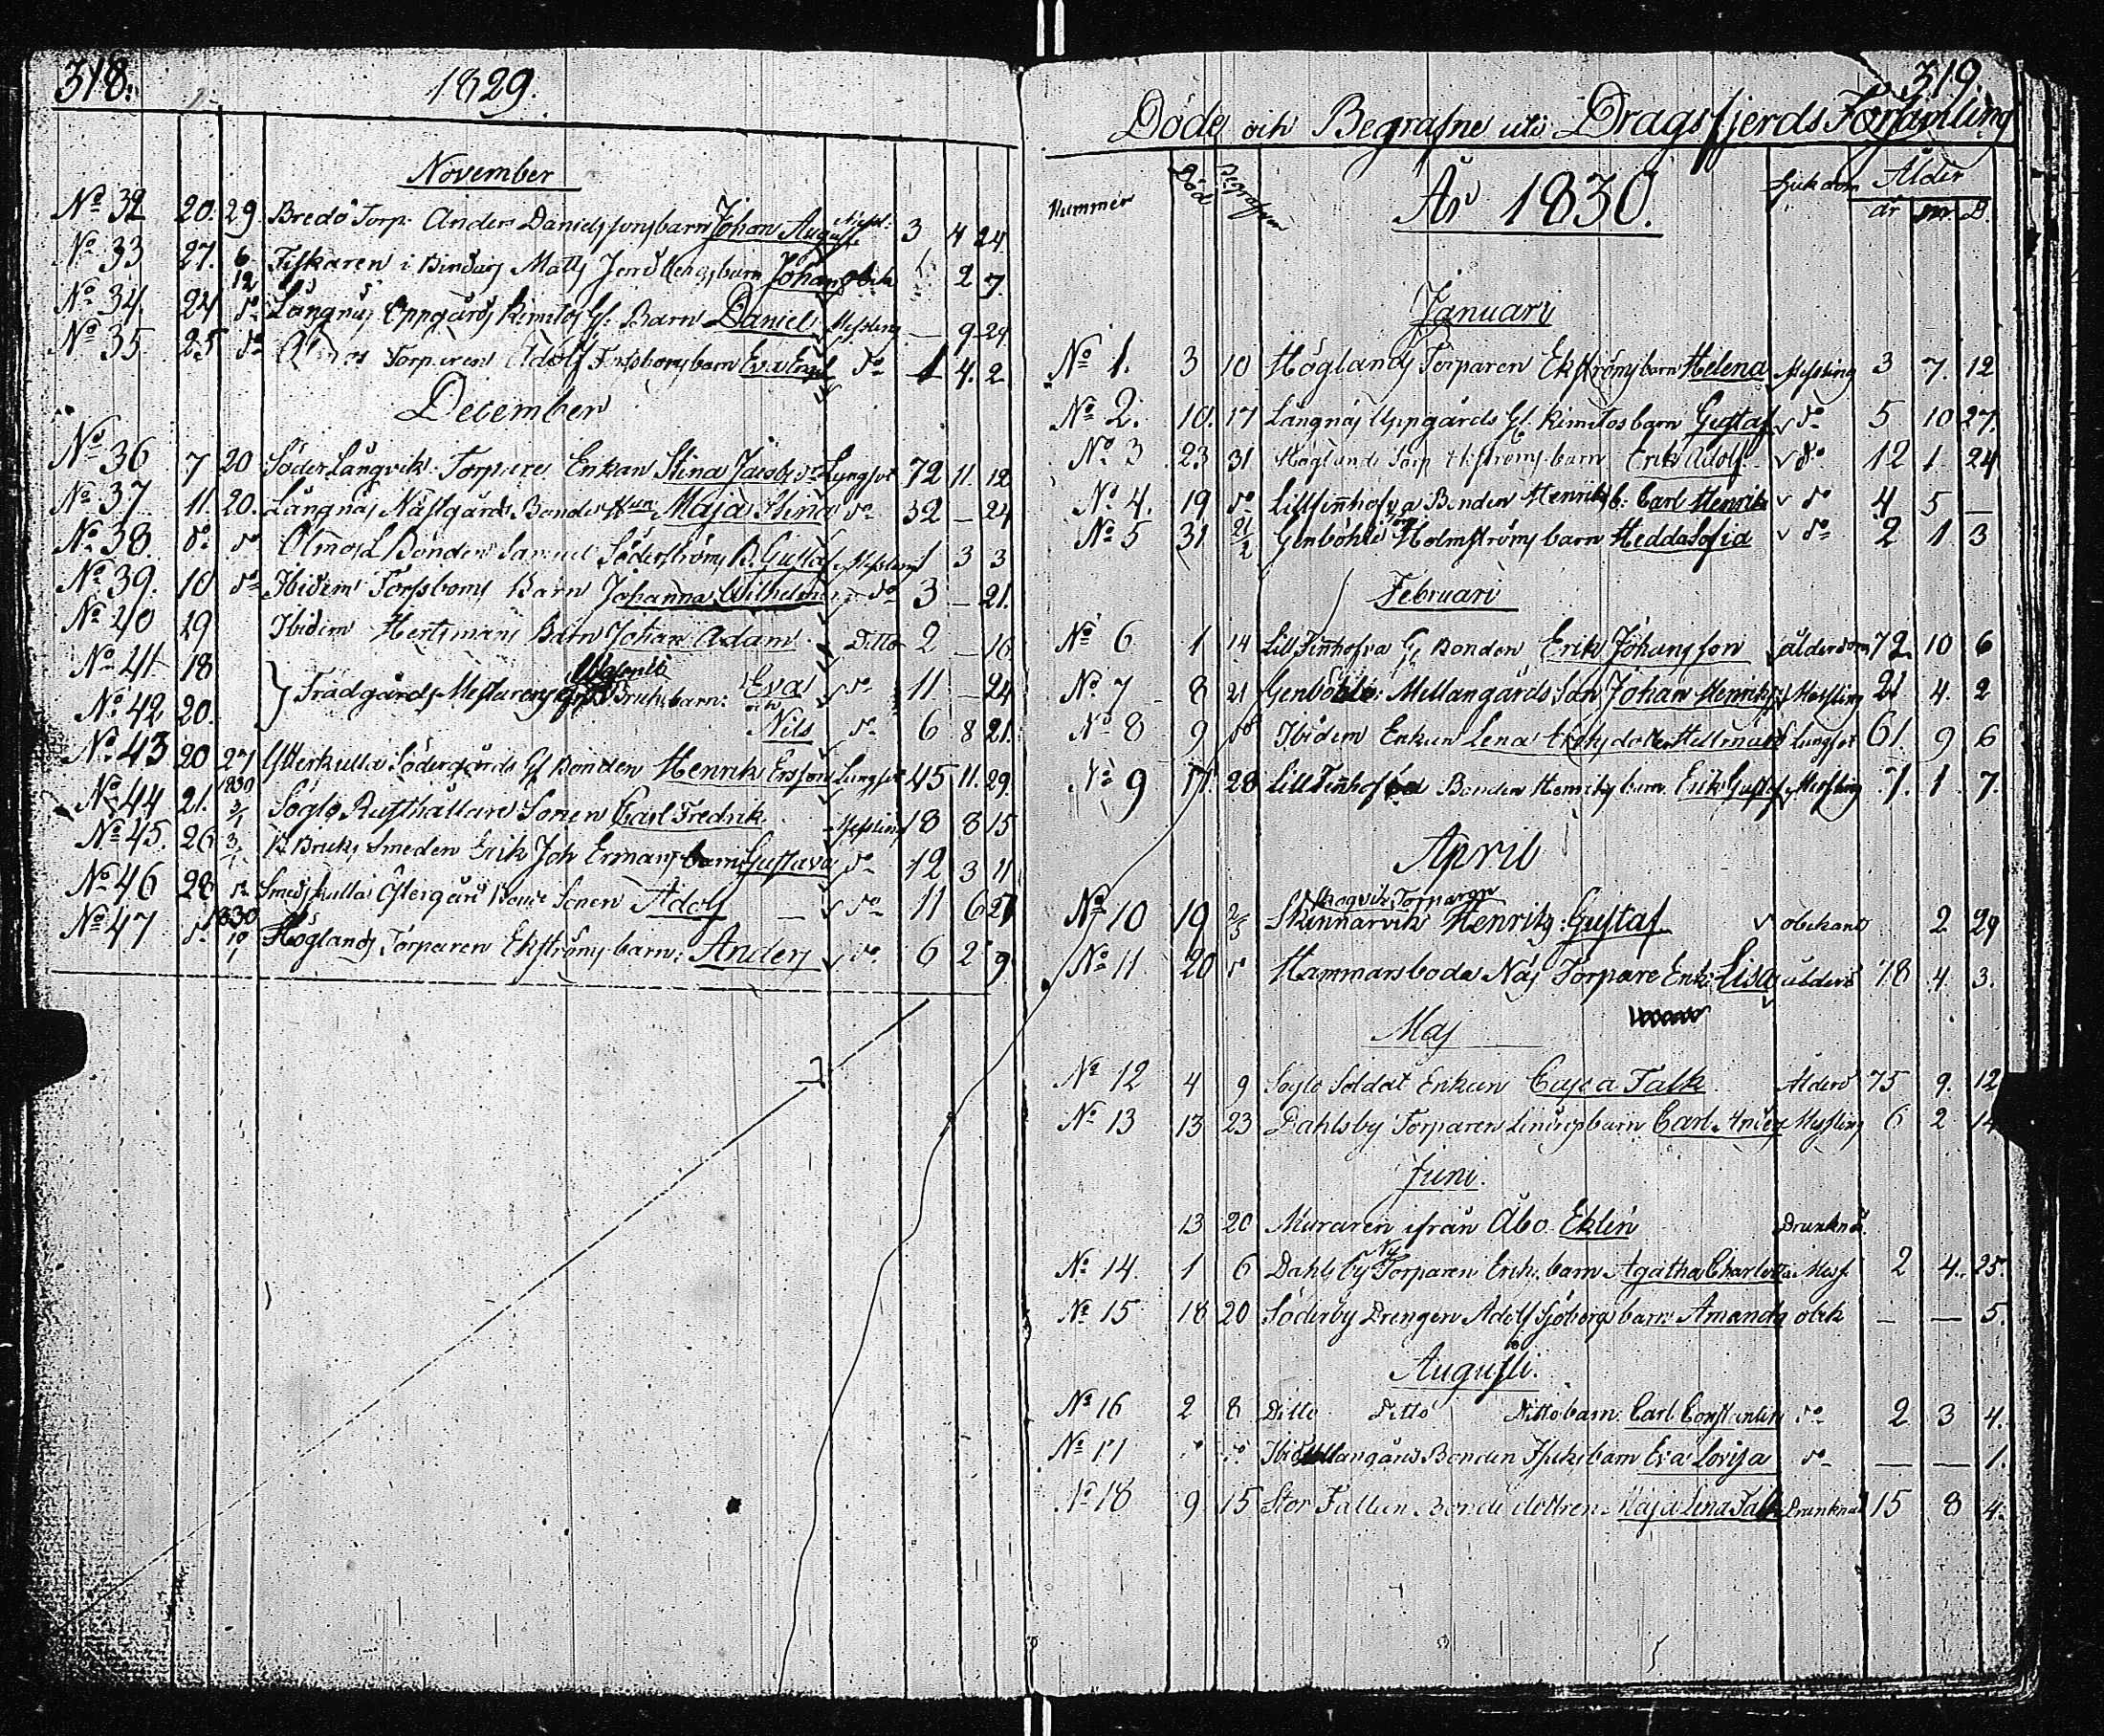 318.
1829.
November
No 32 20. 29. Bredö Torp. Anders Danielssons barn Johan August Messl: 3 4 24
No 33 27. 6 Fiskaren i Matts barn Johan obek 2 7.
12
No 34. 24 do Långnäs Oppgårds Kimitos Gl. Barn Daniel Messling — 9 24
No 35 25 do Ölmos Torparen Adolf Forsboms barn Eva do 1 4. 2
December
No 36 7 20 Söder Långvik Torpare Enkan Stina Jacobsdr Lungsot 72 11. 12
No 37 11. 20. Långnäs Nästgårds Bonde Hun Maja Stina do 32 — 24
No 38. do do Ölmos Bonden Samuel Söderströms B. Gustaf Messling 1 3 3
No 39. 10 do Ibidem Forssboms Barn Johanna Wilhelmina do 3 — 21.
No 40 29 Ibidem Hertsmans Barn Johan Adam Ditto 2 — 16.
No 41 18 Trädgårds Mestarens Bruks barn: Eva do 11 — 24
och
No 42 20. Nils do 6 8 21.
No 43 20 27 Ytterkulla Södergårds Gl Bonden Henrik Ersson Lungsot 45 11. 29.
No 44 21. 1830 3/1 Söglo Rusthållare Sonen Carl Fredrik Messling 18 8 15
No 45. 26 3/1 Bruks Smeden Erik Joh Ermans barn Gustava do 12 3 11
No 46 28 do Smedskulla Östergård Bonde Sonen Adolf — do 11 6 27
No 47 do 1830 10/1 Höglands Torparen Ekströms barn: Anders do 6 2 9.
319.
Döde och Begrafne uti Dragsfjerds Församling
Nummer Död Begrafven År 1830. Sjukdom Ålder
år m. D.
Januari
No 1. 3 10 Höglands Torparen Ekströms barn Helena Messling 3 7. 12
No 2. 10. 17 Långnäs Uppgårds Gl. Kimitos barn Gustaf do 5 10 27.
No 3 23 31 Höglands Torp Ekströms barn Erik Adolf do 12 1 24
No 4. 19 do Lill Finnhofva Bonden Henriks b: Carl Henrik do 4 5 —
No 5 31 21/2 Genböhle Holmströms barn Hedda Sofia do 2 1 3
Februari
No 6 1 14 Lill Finnhofva Gl Bonden Erik Johansson ålderdom 72 10 6
No 7 8 21 Genböhle: Mellangårds Son Johan Henrik Messling 21 4. 2
No 8 9 do Ibidem Enkan Lena Eriksdotter Lungsot 61. 9 6
No 9 17. 28 Lill Finhofva Bonden Henriks barn Erik Gustaf Messling 7. 1 7.
April
Skogvik Torparen
No 10 19 2/5 Skinnarvik Henriks: Gustaf obekand 2 29
No 11 20 do Hammarsboda Näs Torpare Enk: Lisa ålderd 78 4. 3.
Maj
No 12 4 9 Söglo Soldat Enkan Cajsa Falk Ålderd 75 9. 12
No 13 13 23 Dahlsby Torparen Lindrops barn Carl Anders Messling 6 2 14
Juni.
13 20 Muraren ifrån Åbo Eklén Drunknd.
Ny
No 14. 1 6 Dahlsby Torparen Eriks barn Agatha Charlotta Mess. 2 4. 25.
No 15 18 20 Söderby Drengen Adolf Sjöbergs barn Amanda obek — — 5.
Augusti.
No 16 2 8 Ditto Ditto Ditto barn Carl Constantin do 2 3 4.
No 17 do do Ibid Mellangård Bonden Isaks barn Eva Lovisa do — — 1.
No 18 9 15 Stor Fallun Bonde dottren Maja Lena Falk Drunknad 15 8 4.